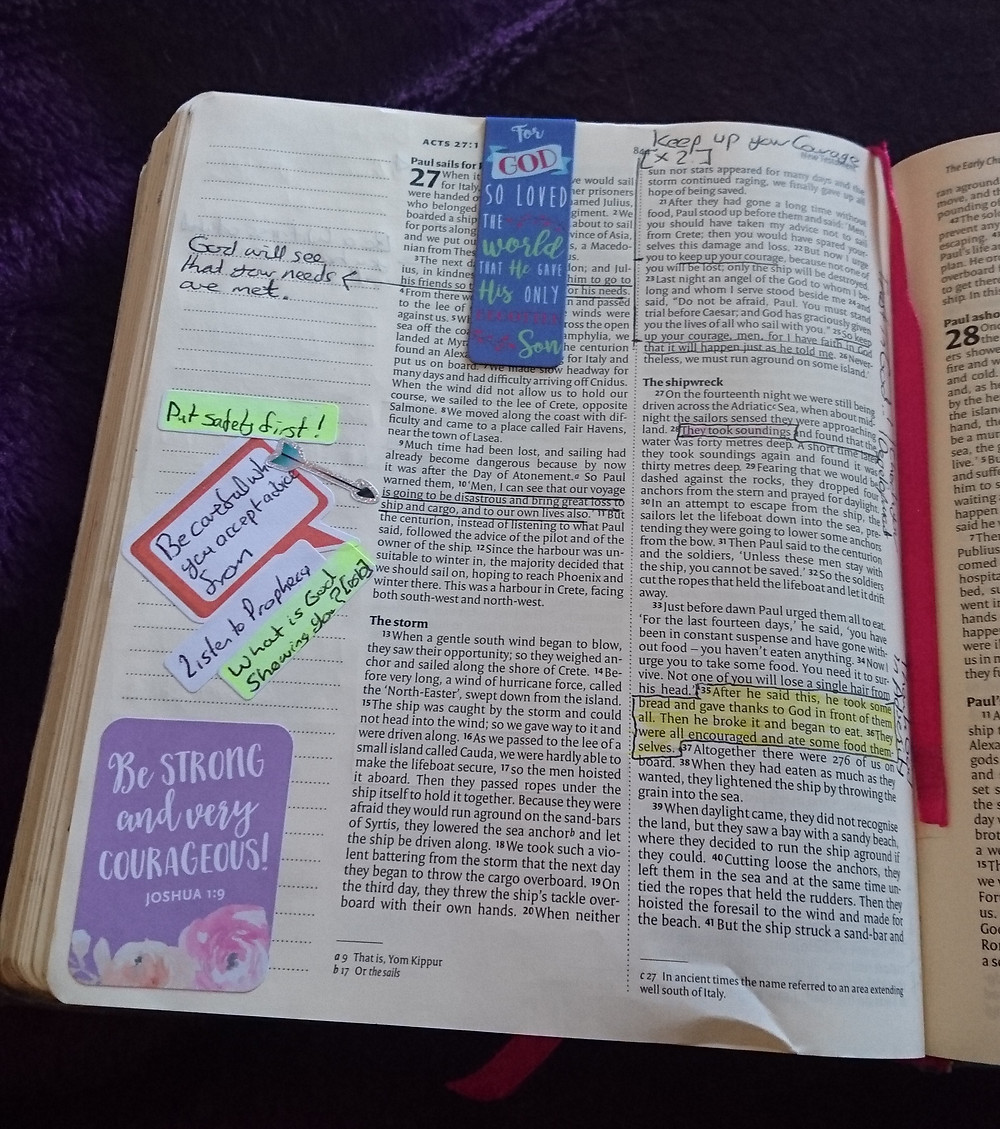 ACTS 27:1
Paul sails for
27 When it
for Italy,
were handed o
who belonged
boarded a ship
for ports along
and we put ou
nian from Thes
3The next d
ius, in kindness
his friends so t
4From there w
to the lee of
against us. 5W
sea off the co
landed at Myr
found an Alex
put us on board. 7We made slow headway for
we would sail
her prisoners
amed Julius,
giment. 2We
about to sail
vince of Asia,
s, a Macedo-
us.
don; and Jul-
him to go to
for his needs.
n and passed
winds were
ross the open
amphylia, we
he centurion
for Italy and
many days and had difficulty arriving off Cnidus.
When the wind did not allow us to hold our
course, we sailed to the lee of Crete, opposite
Salmone. 8We moved along the coast with dif-
ficulty and came to a place called Fair Havens,
near the town of Lasea.
9Much time had been lost, and sailing had
already become dangerous because by now
it was after the Day of Atonement.a So Paul
warned them, 10'Men, I can see that our voyage
is going to be disastrous and bring great loss to
ship and cargo, and to our own lives also.' 11But
the centurion, instead of listening to what Paul
said, followed the advice of the pilot and of the
owner of the ship. 12Since the harbour was un-
suitable to winter in, the majority decided that
we should sail on, hoping to reach Phoenix and
winter there. This was a harbour in Crete, facing
both south-west and north-west.
The storm
13When a gentle south wind began to blow,
they saw their opportunity; so they weighed an-
chor and sailed along the shore of Crete. 14Be-
fore very long, a wind of hurricane force, called
the 'North-Easter', swept down from the island.
15The ship was caught by the storm and could
not head into the wind; so we gave way to it and
were driven along. 16As we passed to the lee of a
small island called Cauda, we were hardly able to
make the lifeboat secure, 17so the men hoisted
it aboard. Then they passed ropes under the
ship itself to hold it together. Because they were
afraid they would run aground on the sand-bars
of Syrtis, they lowered the sea anchorb and let
the ship be driven along. 18We took such a vio-
lent battering from the storm that the next day
they began to throw the cargo overboard. 19On
the third day, they threw the ship's tackle over-
board with their own hands. 20When neither
a 9 That is, Yom Kippur
b 17 Or the sails
For
GOD
SO LOVED
THE
world
THAT He GAVE
His ONLY
Son
God will see
that your needs
are met.
Put safety first!
Be careful who
you accept advice
from
Listen to Prophecy
What is God
Showing you?
Be STRONG
and very
COURAGEOUS!
JOSHUA 1:9
Keep up your Courage
[x 2!]
New Testament
sun nor stars appeared for many days and the
storm continued raging, we finally gave up all
hope of being saved.
21After they had gone a long time without
food, Paul stood up before them and said: 'Men,
you should have taken my advice not to sail
from Crete; then you would have spared your-
selves this damage and loss. 22But now I urge
you to keep up your courage, because not one of
you will be lost; only the ship will be destroyed.
23Last night an angel of the God to whom I be-
long and whom I serve stood beside me 24and
said, "Do not be afraid, Paul. You must stand
trial before Caesar; and God has graciously given
you the lives of all who sail with you." 25So keep
up your courage, men, for I have faith in God
that it will happen just as he told me. 26Never-
theless, we must run aground on some island.'
The shipwreck
27On the fourteenth night we were still being
driven across the Adriaticc Sea, when about mid-
night the sailors sensed they were approaching
land. 28They took soundings and found that the
water was forty metres deep. A short time later
they took soundings again and found it was
thirty metres deep. 29Fearing that we would be
dashed against the rocks, they dropped four
anchors from the stern and prayed for daylight.
30In an attempt to escape from the ship, the
sailors let the lifeboat down into the sea, pre-
tending they were going to lower some anchors
from the bow. 31Then Paul said to the centurion
and the soldiers, 'Unless these men stay with
the ship, you cannot be saved.' 32So the soldiers
cut the ropes that held the lifeboat and let it drift
away.
33Just before dawn Paul urged them all to eat.
'For the last fourteen days,' he said, 'you have
been in constant suspense and have gone with-
out food – you haven't eaten anything. 34Now I
urge you to take some food. You need it to sur-
vive. Not one of you will lose a single hair from
his head.' 35After he said this, he took some
bread and gave thanks to God in front of them
all. Then he broke it and began to eat. 36They
were all encouraged and ate some food them-
selves. 37Altogether there were 276 of us on
board. 38When they had eaten as much as they
wanted, they lightened the ship by throwing the
grain into the sea.
39When daylight came, they did not recognise
the land, but they saw a bay with a sandy beach,
where they decided to run the ship aground if
they could. 40Cutting loose the anchors, they
left them in the sea and at the same time un-
tied the ropes that held the rudders. Then they
hoisted the foresail to the wind and made for
the beach. 41But the ship struck a sand-bar and
c 27 In ancient times the name referred to an area extending
well south of Italy.
The Early Ch
ran aground
move, and th
pounding of
42The so
prevent any
escaping. 43
Paul's life a
plan. He or
overboard
to get there
ship. In thi
Paul asho
28 On
the